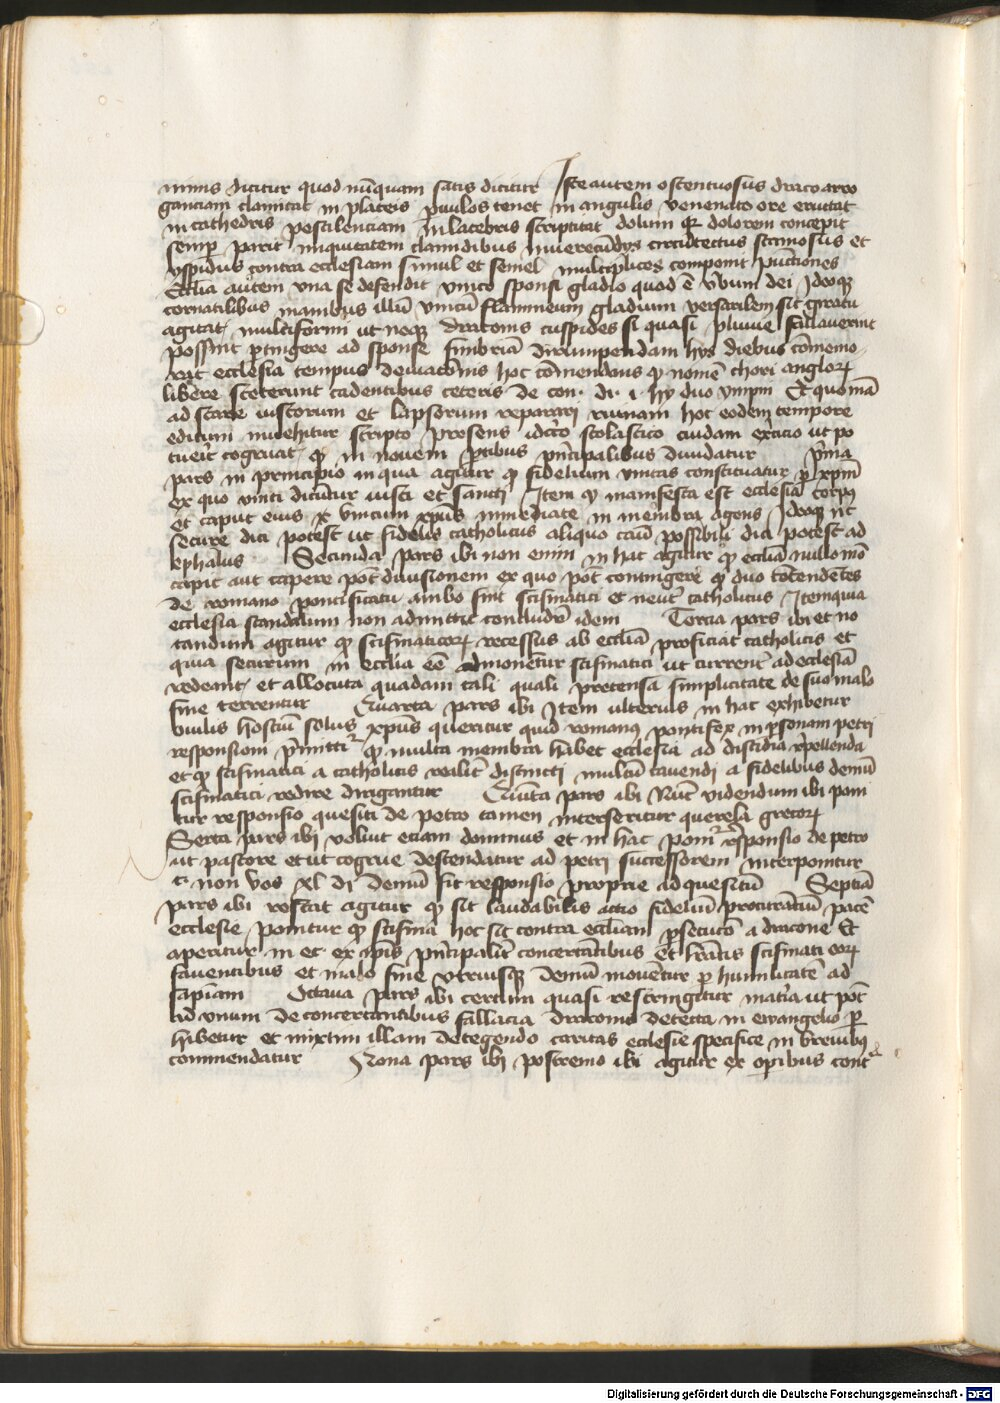 nimis dicitur quod nūquam satis dicitur Iste autem ostentuosus draco arro
ganciam clamitat in plateis puulos tenet in angulis venenato ore eructat
in cathedris pestilenciam in latebris scriptitat dolum qr dolorem concepit
semp parit iniquitatem clamidibus circūtectus et
yspidus contra ecclesiam simul et semel multiplices componit pūctiones
Ecclīa autem vna se defendit vnico sponsi gladio quod ē vbum dei Ideoqꝫ
manibus illū vnicū flammeum gladium versatilem sic giratu
agitat multiformi ut neqꝫ draconis cuspides si quasi pluuie
possint ptingere ad sponse fimbriā dirumpendam hys diebus cōmemo
rat ecclesia tempus hoc cōmendans qꝫ nomē chori anglorꝫ
libere steterunt cadentibus ceteris de con. di. i. hij duo Et quoniā
ad stare iustorum et lapsorum reparari ruinam hoc eodem tempore
editum inuehitur scripto presens scolastico cuidam ut po
tuerit cogruat qꝫ in nouem ptibus pncipalibus diuidatur pma
pars in principio in qua agitur qꝫ fidelium vnitas constituatur p xpm
ex quo vniti dicūtur iusti et sancti Item qꝫ manifesta est ecclesia corpꝰ
et caput eius et vnicum xpūs immediate in membra agens Ideoqꝫ nec
secure dici potest ut fidelis catholicus aliquo casu possibili dici potest ad
lephalus Secunda pars ibi non enim in hac agitur qꝫ ecclīa nullo mō
capit aut capere pōt diuisionem ex quo pōt contingere qꝫ duo cōtendētes
de romano pontificatu ambo sint scismatici et neut catholicus Item quia
ecclesia scandalum non admittit concludit idem Tercia pars ibi et no
tandum agitur qꝫ scismaticorꝫ recessus ab ecclīa proficiat catholicis et
quia securum in ecclīa eē admonentur scismatici ut currenter ad ecclesiā
redeant et allocuta quadam tali quali pretensa simplicitate de suo malo
fine terrentur Quarta pars ibi Item ulterius in hac exhibetur
hostiū solus xpūs queritur quid romanus pontifex in psonam petri
responsioni pmittitur qꝫ multa membra habet ecclesia ad discidia repellenda
et qꝫ scismatici a catholicis realiter distincti multū cauendi a fidelibus demū
scismatici redire dirigantur Quīta pars ibi Nūc videndum ibi poni
tur responsio quesiti de petro tamen interseritur querela grecorꝫ
Sexta pars ibi voluit etiam dominus et in hac ponitur responsio de petro
ut pastore et ut cogrue descendatur ad petri successorem interponitur
c. non vos xl di demū fit responsio proprie ad quesitū Septīa
pars ibi restat agitur qꝫ sit laudabilis actio fideliū procurātiū pacē
ecclesie ponitur qꝫ scisma hoc sit contra ecclīam psecucō a dracone Et
aperitur in et ex ipīs pncipaliter concertātibus et scismati eorꝫ
fauentibus et malo fine vtriusqꝫ demū mouetur p humilitatē ad
sapiam Octaua pars ibi certum quasi restringitur matīa ut pōt
ad vnum de concertantibus fallacia draconis detecta in ewangelio p
hibetur et mixtim illam detegendo caritas ecclesie specifice in breuibus
commendatur Nona pars ibi postremo ibi agitur ex opībus cont
Digitalisierung gefördert durch die Deutsche Forschungsgemeinschaft - DFG